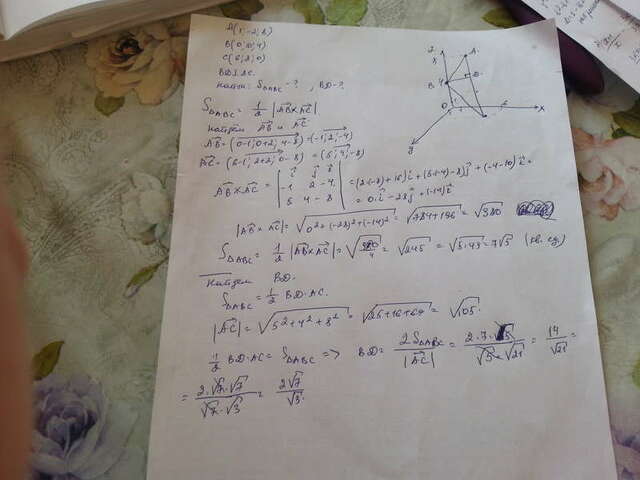 A(1; -2; 8)
B(0; 0; 4)
C(6; 2; 0)
BD⊥AC.
найти: S△ABC - ? , BD - ?
S△ABC = 1/2 |AB×AC|
Найдем AB и AC
AB = (0-1; 0+2; 4-8) = (-1; 2; -4)
AC = (6-1; 2+2; 0-8) = (5; 4; -8)
AB×AC = | i j k | -1 2 -4 | 5 4 -8 | = (2·(-8)+16)i + (5·(-4)-8)j + (-4-10)k =
= 0·i - 28j + (-14)k
|AB×AC| = √(0²+(-28)²+(-14)²) = √(784+196) = √980
S△ABC = 1/2 |AB×AC| = √(980/4) = √245 = √(5·49) = 7√5 (кв. ед.)
Найдем BD.
S△ABC = 1/2 BD·AC.
|AC| = √(5²+4²+8²) = √(25+16+64) = √105.
1/2 BD·AC = S△ABC => BD = 2S△ABC / |AC| = 2·7·√5 / √5·√21 = 14/√21 =
= 2·√7·√7 / √7·√3 = 2√7 / √3.
z
8
A
B
4
D
O
x
y
C